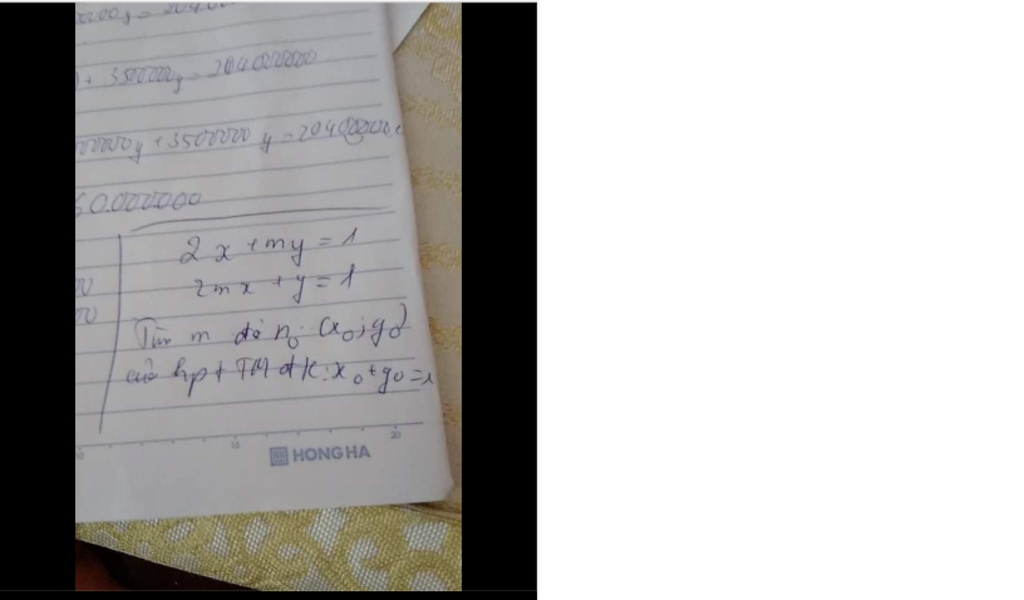 + 3500000y = 204000000
y + 3500000 y = 204000000
0.000.000
2x + my = 1
2mx + y = 1
Tìm m để n0 (x0; y0)
của hpt TM đk: x0 + y0 = 1
15
20
HONG HA